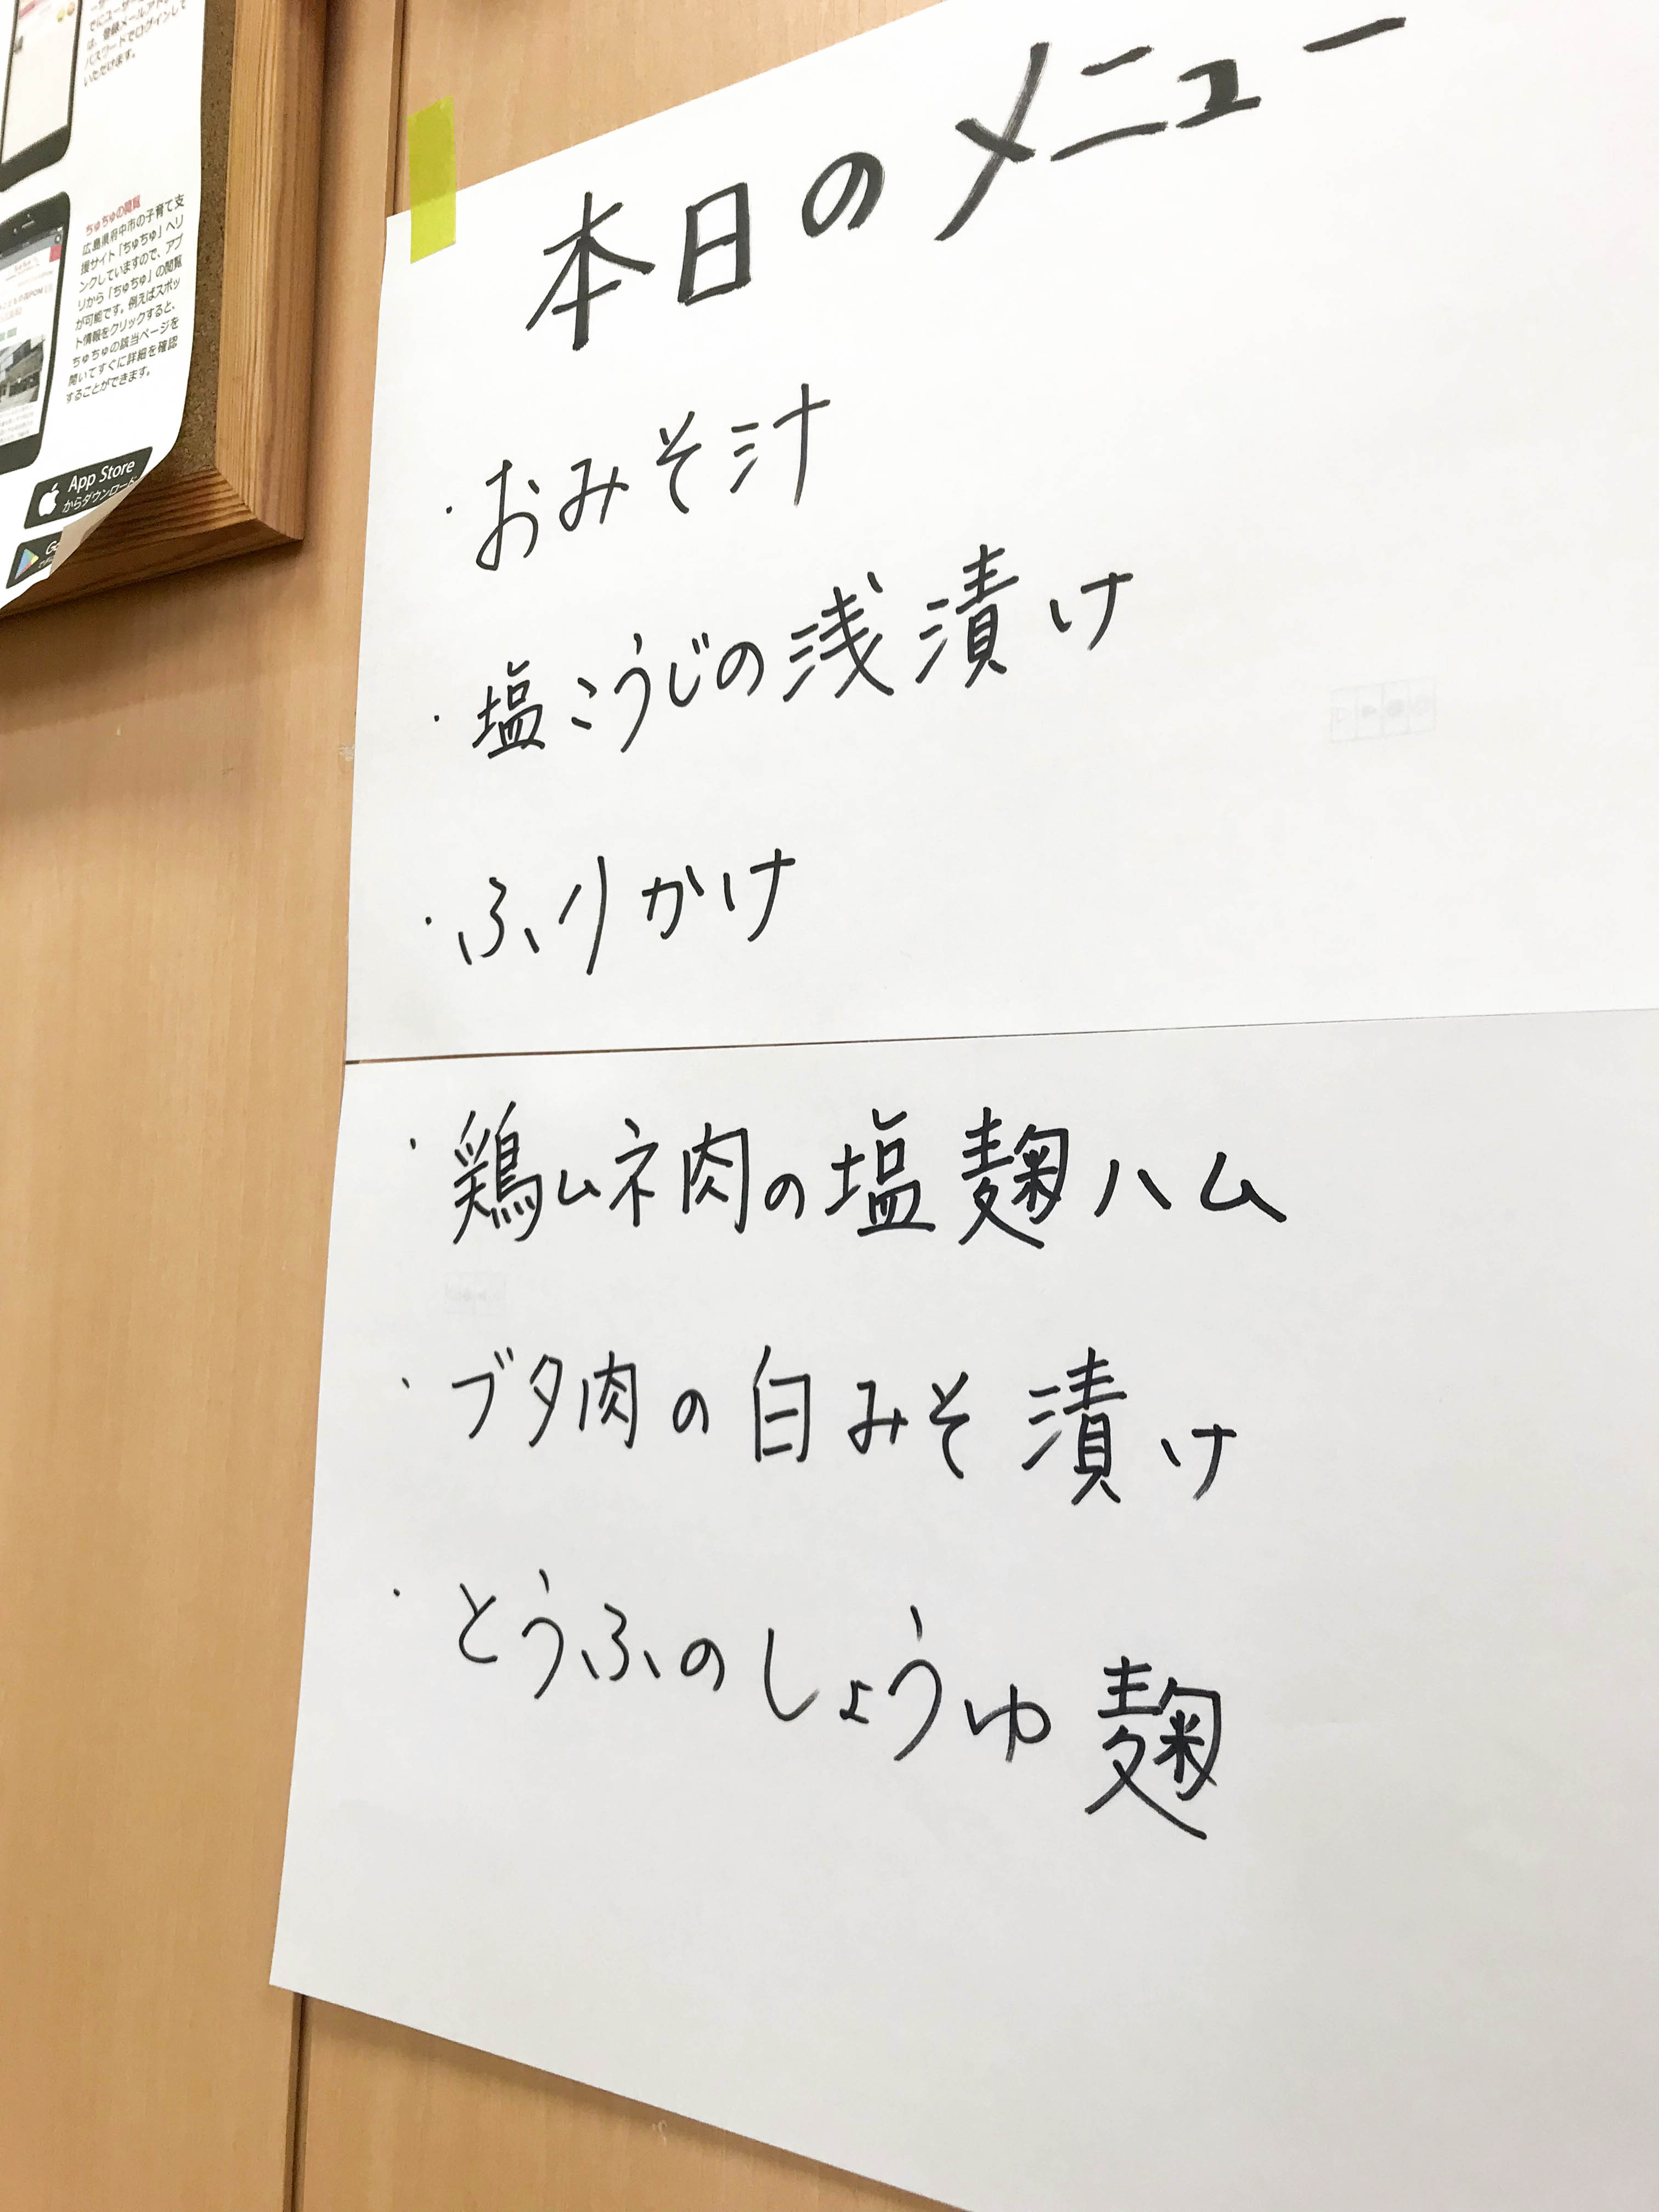 は、登録メールアド
パスワードでログインして
いただけます。
ちゅちゅの閲覧
広島県府中市の子育て支
援サイト「ちゅちゅ」へリ
ンクしていますので、アプ
リから「ちゅちゅ」の閲覧
が可能です。例えばスポッ
ト情報をクリックすると、
ちゅちゅの該当ページを
開いてすぐに詳細を確認
することができます。
App Store
からダウンロード
本日のメニュー
・おみそ汁
・塩こうじの浅漬け
・ふりかけ
・鶏ムネ肉の塩麹ハム
・ブタ肉の白みそ漬け
・とうふのしょうゆ麹